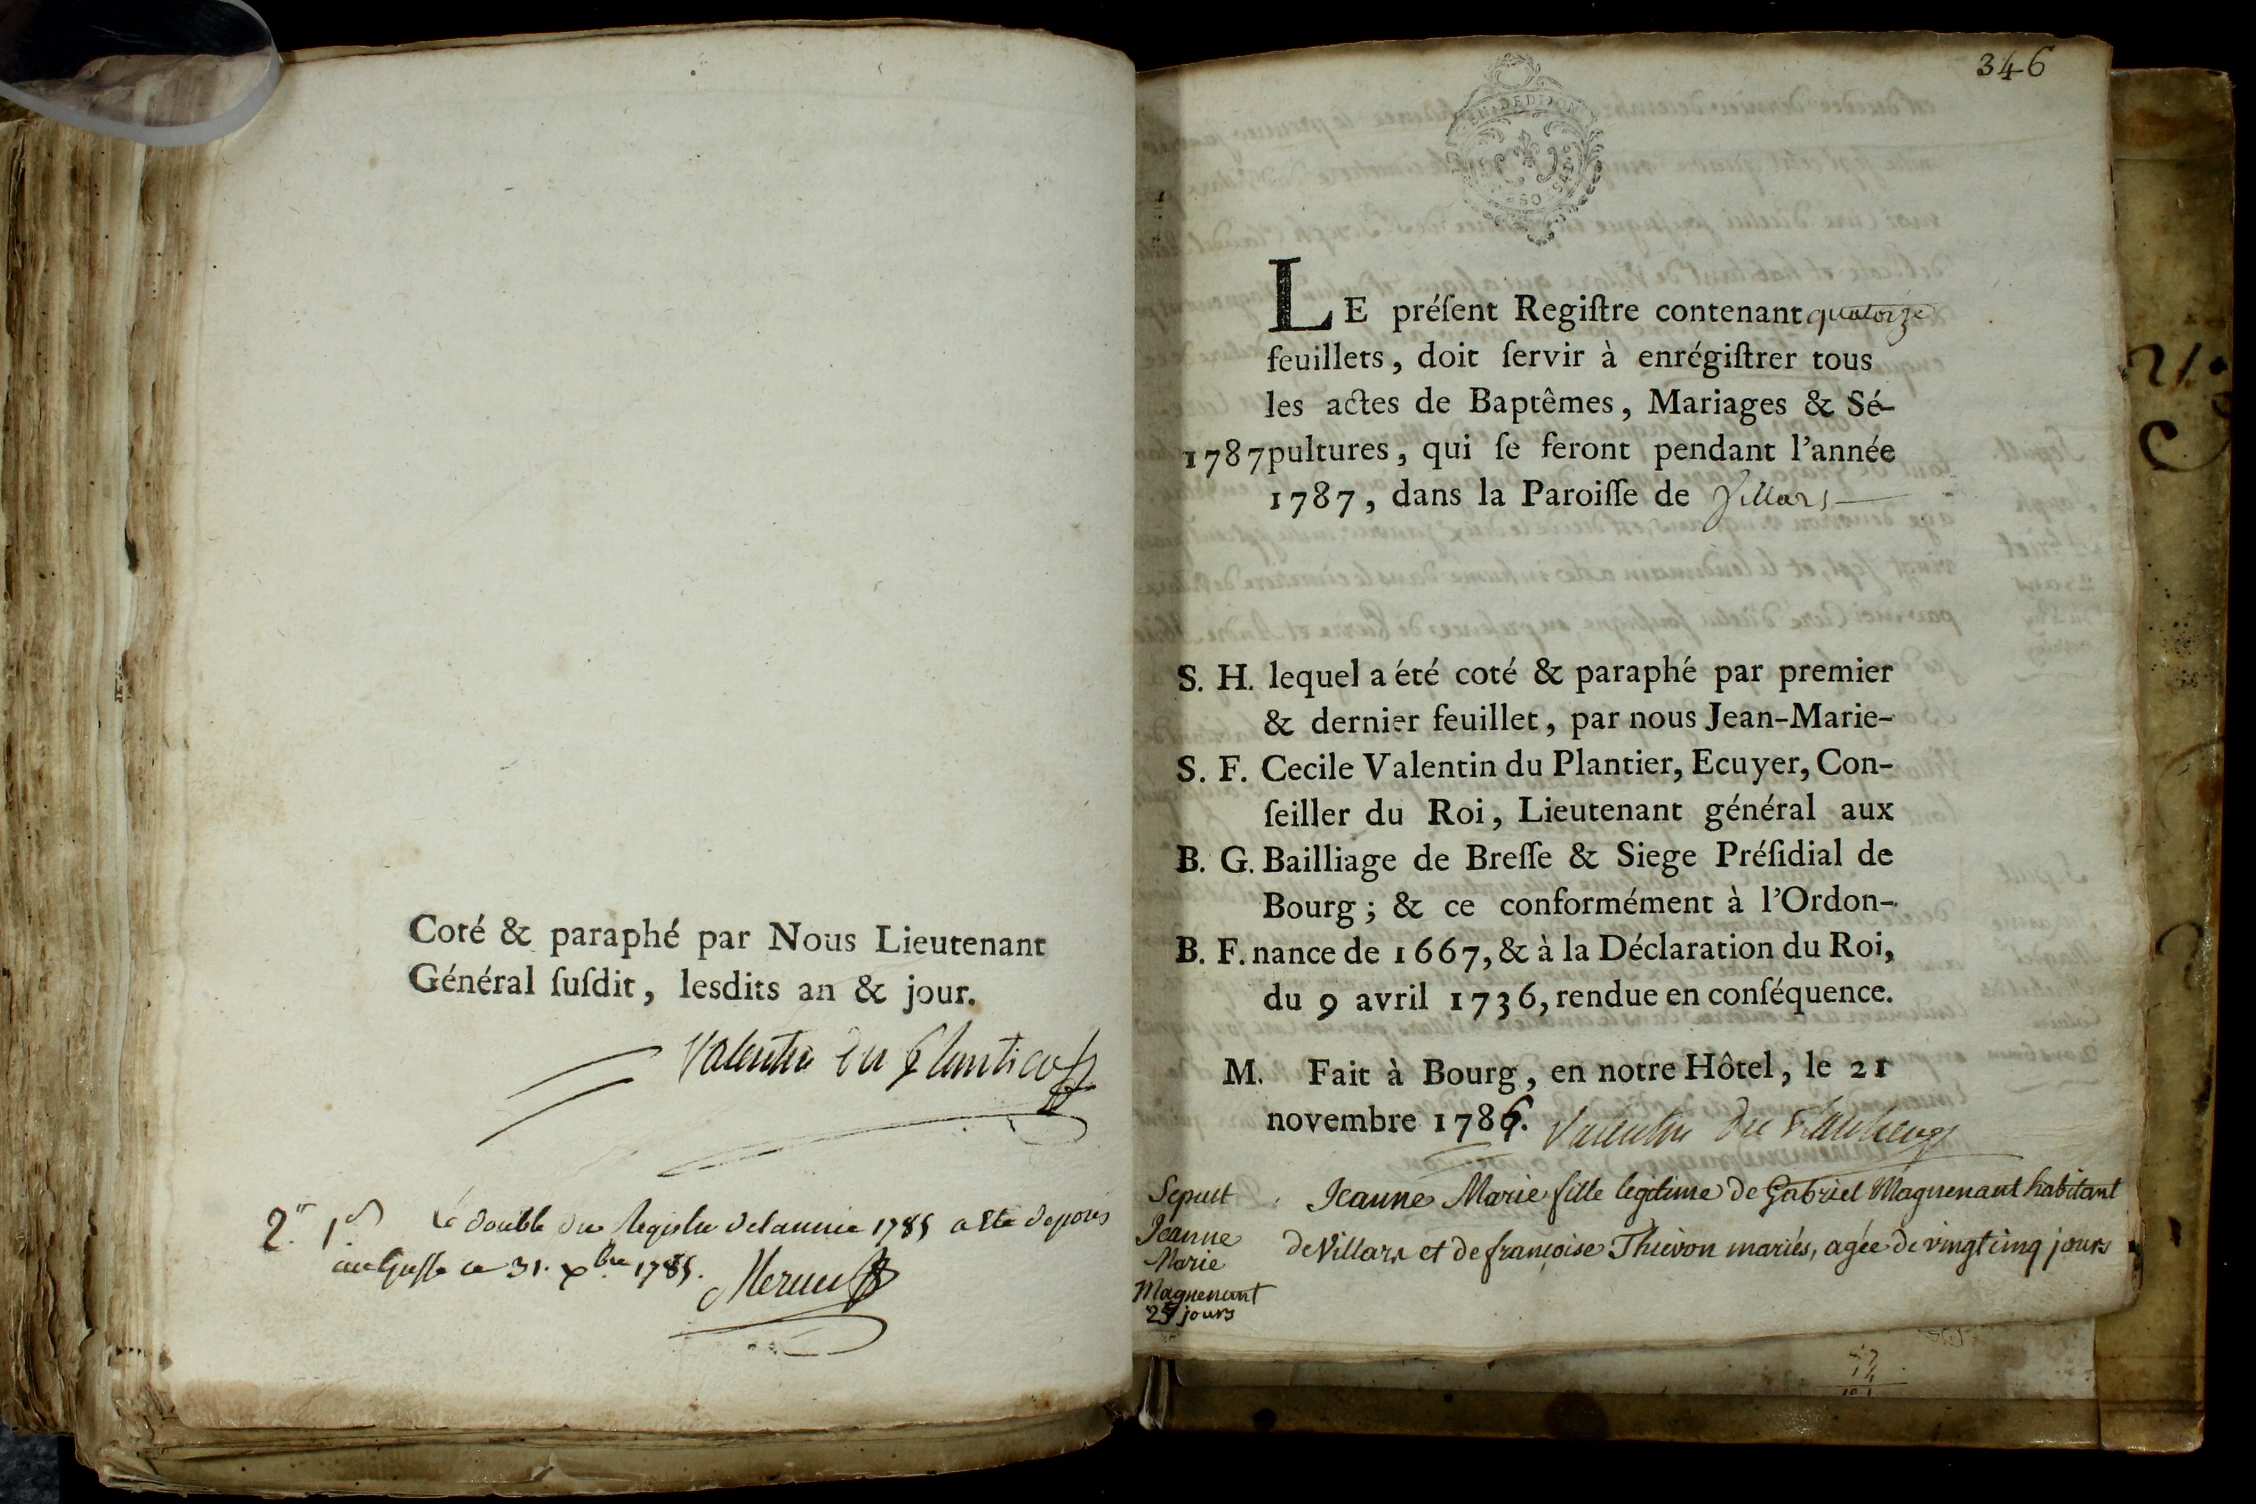 Coté & paraphé par Nous Lieutenant
Général ſuſdit, lesdits an & jour.
Valentin du Plantier
2. 1.d Le double du Registre de l'annee 1785 a Eté deposé
au Greffe ce 31. xbre 1785.
346
LE préſent Regiſtre contenant quatorze
feuillets, doit ſervir à enrégiſtrer tous
les actes de Baptêmes, Mariages & Sé-
1787 pultures, qui ſe feront pendant l'année
1787, dans la Paroiſſe de Villars
S. H. lequel a été coté & paraphé par premier
& dernier feuillet, par nous Jean-Marie-
S. F. Cecile Valentin du Plantier, Ecuyer, Con-
ſeiller du Roi, Lieutenant général aux
B. G. Bailliage de Breſſe & Siege Préſidial de
Bourg; & ce conformément à l'Ordon-
B. F. nance de 1667, & à la Déclaration du Roi,
du 9 avril 1736, rendue en conſéquence.
M. Fait à Bourg, en notre Hôtel, le 21
novembre 1786. Valentin du Plantier
Sepult
Jeanne
Marie
Magnenant
25 jours
Jeanne Marie fille legitime de Gabriel Magnenant habitant
de Villars et de françoise Thievon mariés, agée de vingt cinq jours